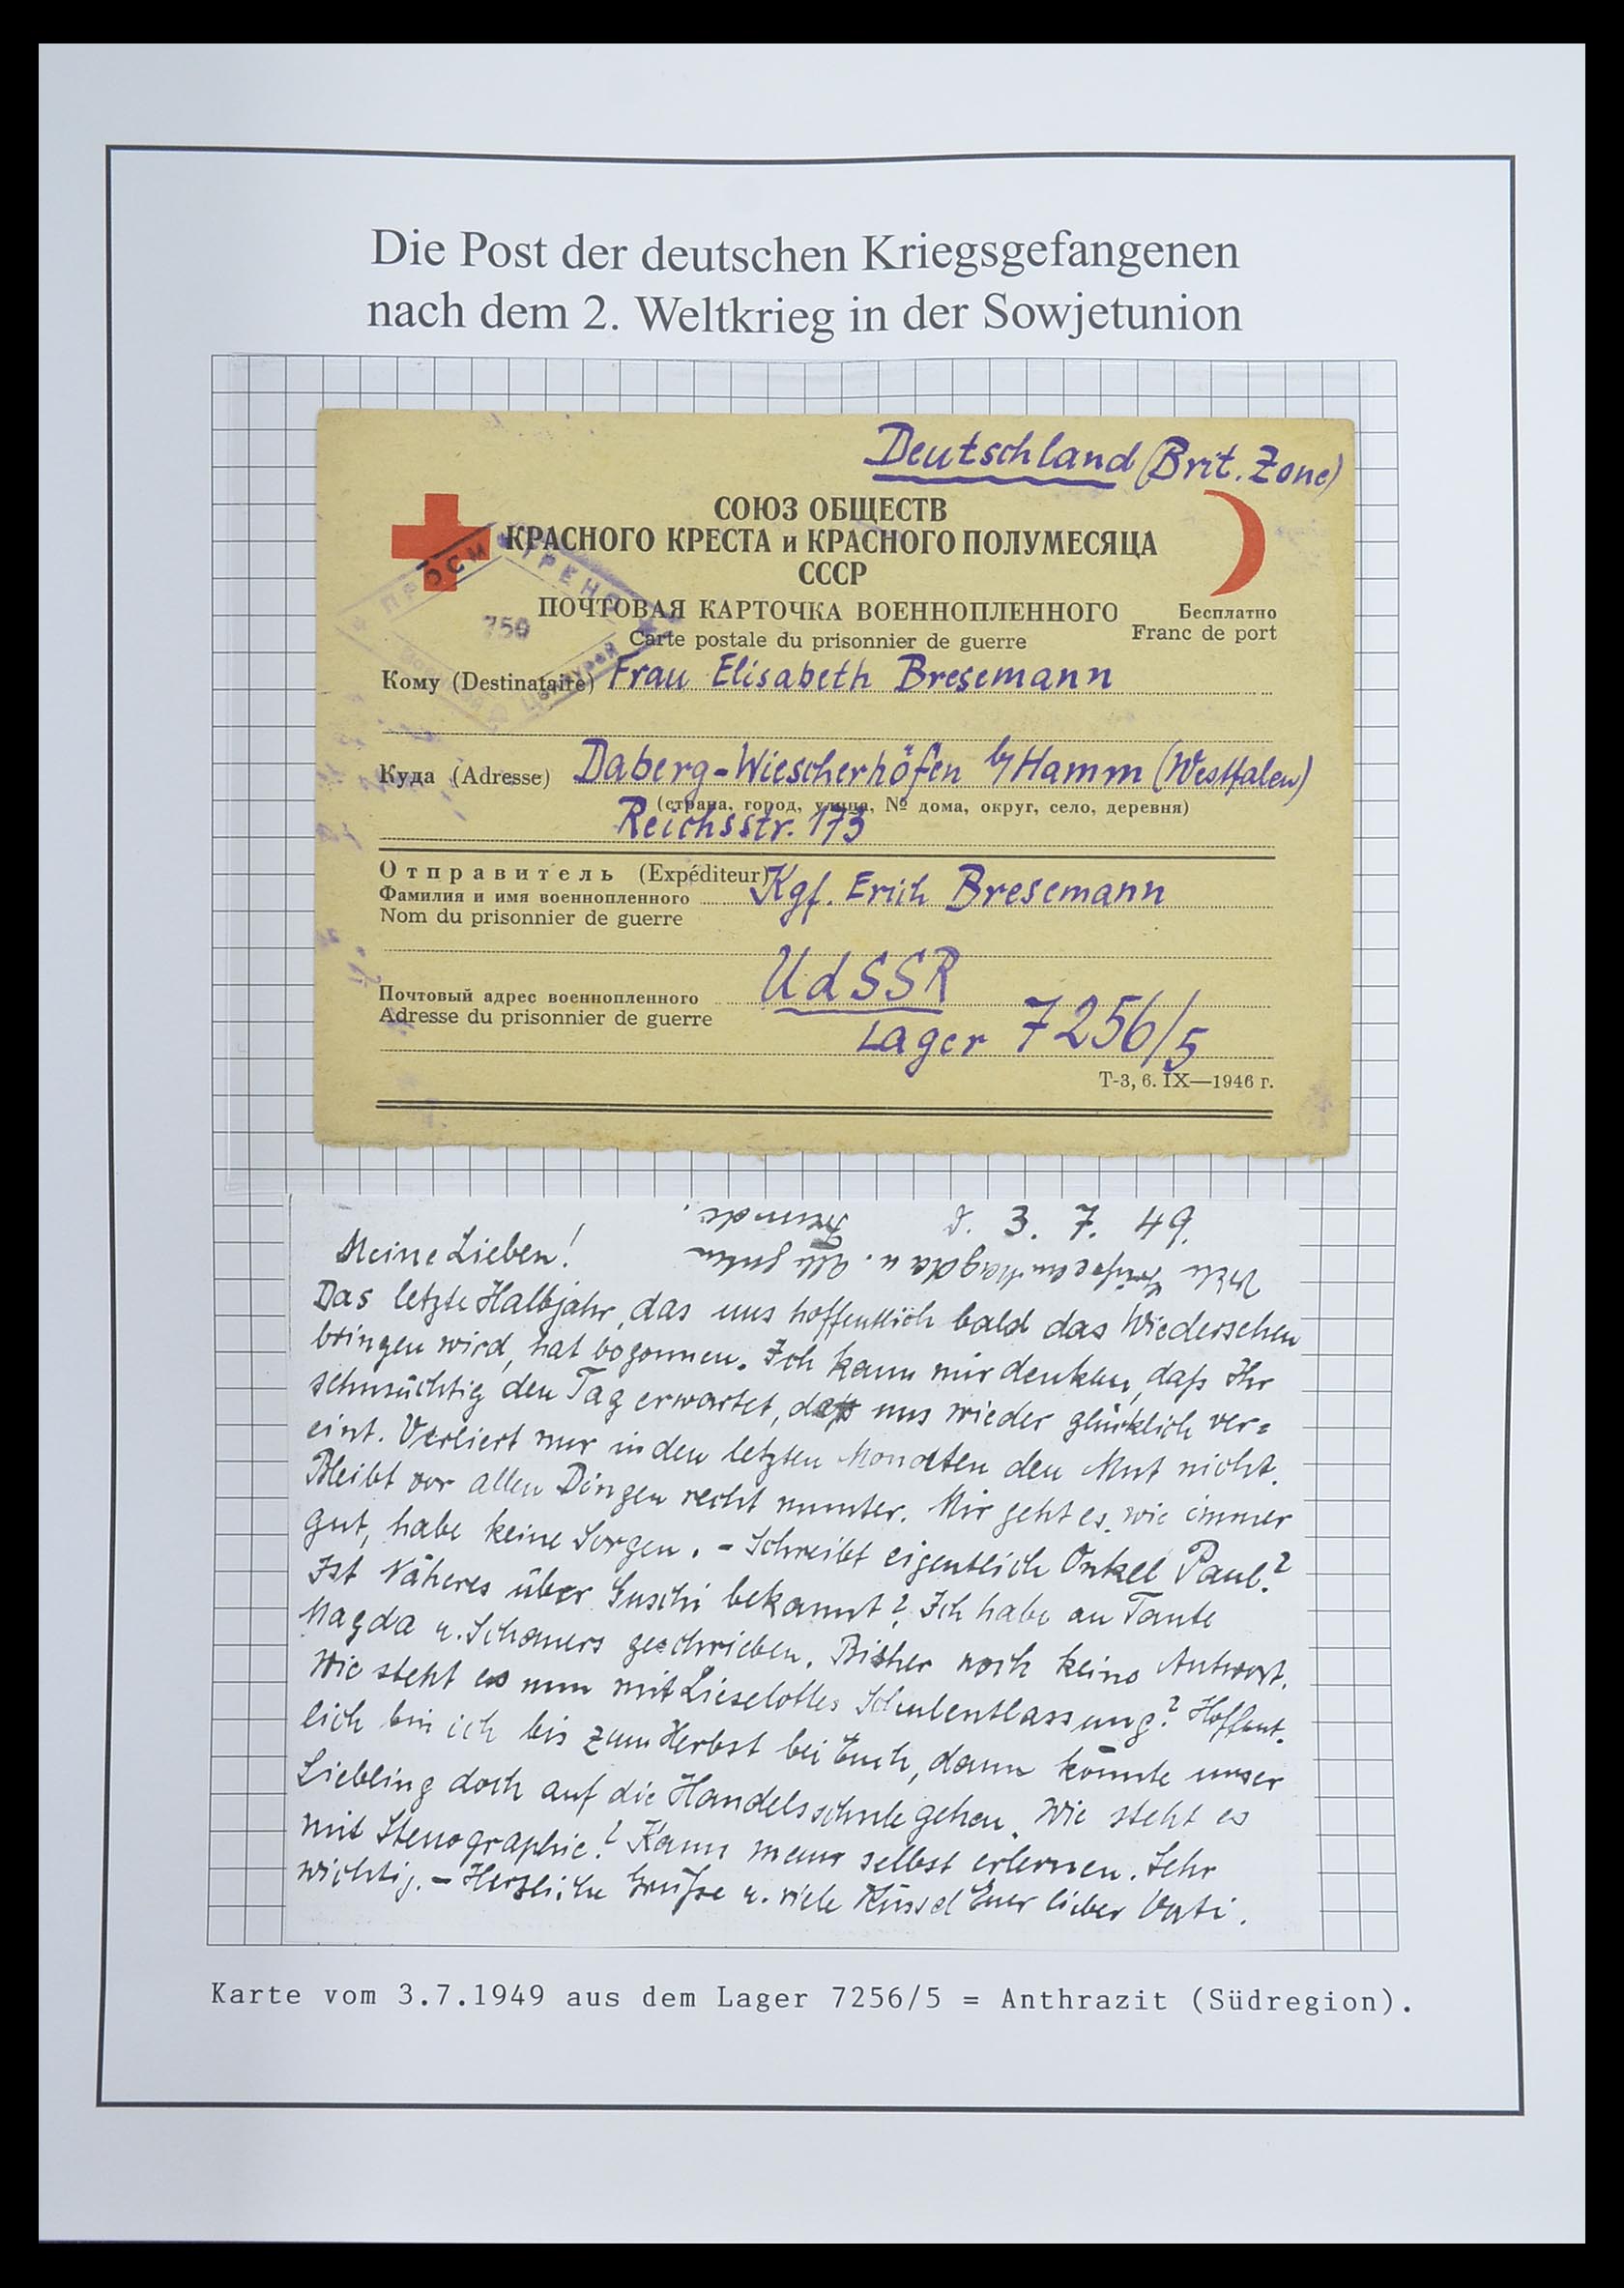 Die Post der deutschen Kriegsgefangenen
nach dem 2. Weltkrieg in der Sowjetunion
Deutschland (Brit. Zone)
СОЮЗ ОБЩЕСТВ
КРАСНОГО КРЕСТА и КРАСНОГО ПОЛУМЕСЯЦА
СССР
ПРОСМОТРЕНО
750
Военной Цензурой
ПОЧТОВАЯ КАРТОЧКА ВОЕННОПЛЕННОГО
Carte postale du prisonnier de guerre
Бесплатно
Franc de port
Кому (Destinataire) Frau Elisabeth Bresemann
Куда (Adresse) Daberg-Wiescherhöfen b/ Hamm (Westfalen)
(страна, город, улица, № дома, округ, село, деревня)
Reichsstr. 173
Отправитель (Expéditeur)
Фамилия и имя военнопленного Kgf. Erich Bresemann
Nom du prisonnier de guerre
UdSSR
Почтовый адрес военнопленного
Adresse du prisonnier de guerre
Lager 7256/5
Т-3, 6. IX—1946 г.
d. 3. 7. 49.
Viele Grüße an Magda u. alle guten
Freunde.
Meine Lieben!
Das letzte Halbjahr, das uns hoffentlich bald das Wiedersehen
bringen wird, hat begonnen. Ich kann mir denken, daß Ihr
sehnsüchtig den Tag erwartet, daß uns wieder glücklich ver=
eint. Verliert nur in den letzten Monaten den Mut nicht.
Bleibt vor allen Dingen recht munter. Mir geht es, wie immer
gut, habe keine Sorgen. - Schreibt eigentlich Onkel Paul?
Ist Näheres über Guschi bekannt? Ich habe an Tante
Magda u. geschrieben. Bisher noch keine Antwort.
Wie steht es nun mit Lieselottes Schulentlassung? Hoffent-
lich bin ich bis zum Herbst bei Euch, dann könnte unser
Liebling doch auf die Handelsschule gehen. Wie steht es
mit Stenographie? Kann man selbst erlernen. Sehr
wichtig. - Herzliche Grüße u. viele Küsse! Euer lieber Vati.
Karte vom 3.7.1949 aus dem Lager 7256/5 = Anthrazit (Südregion).